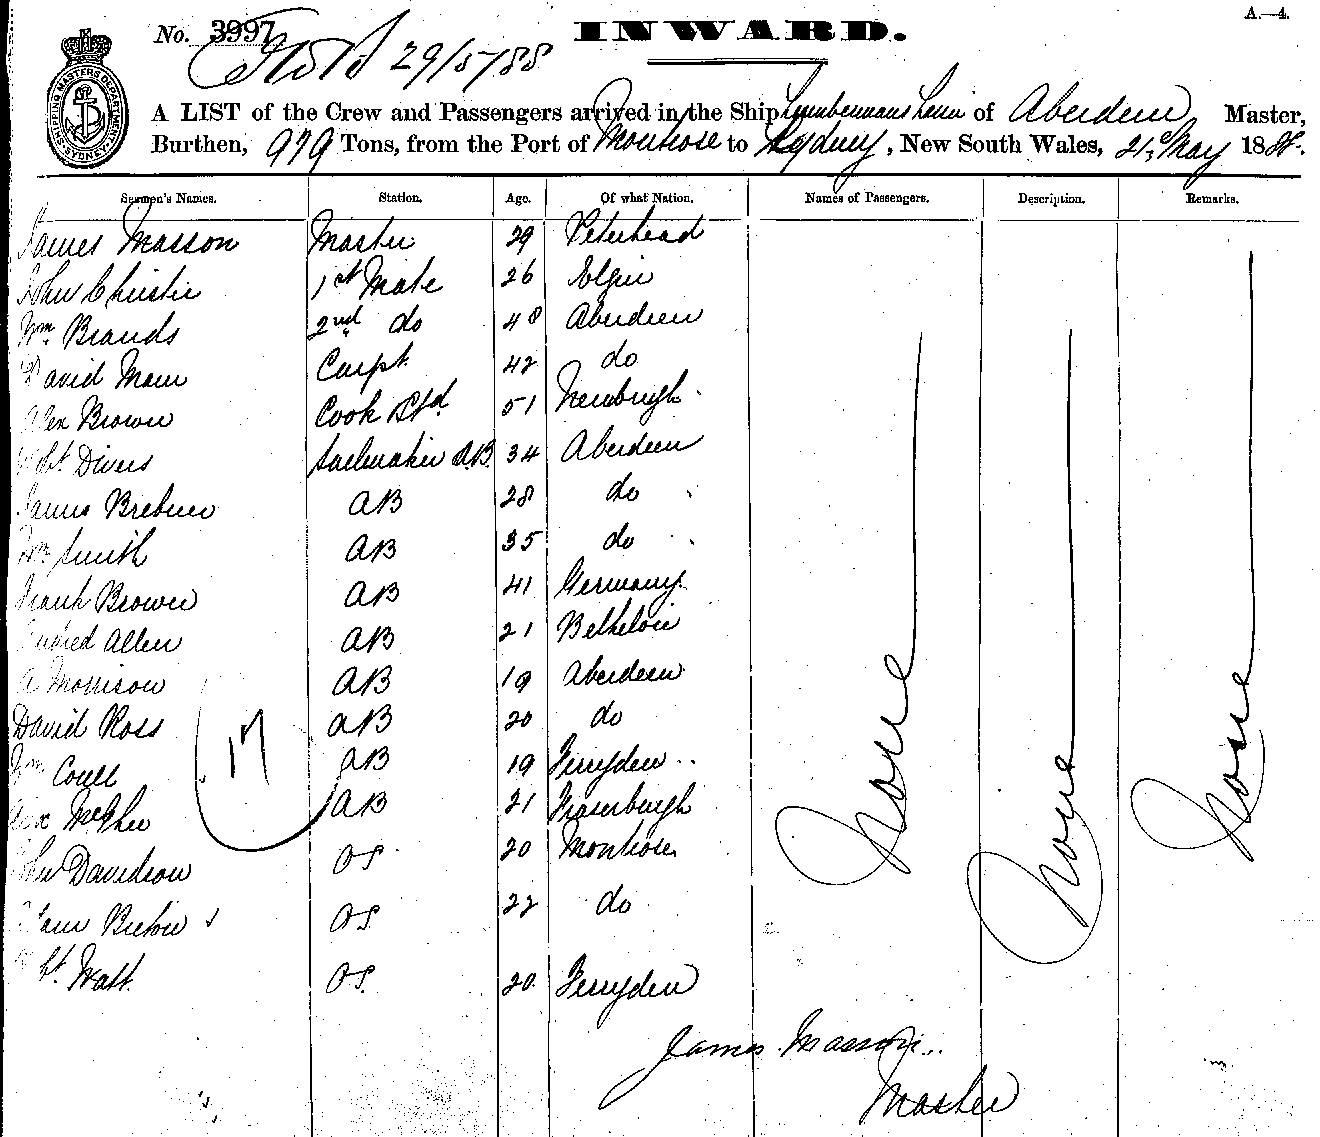 A.—4.
No. 3997 INWARD.
29/5/88
SHIPPING MASTERS DEPARTMENT SYDNEY
A LIST of the Crew and Passengers arrived in the Ship of Aberdeen Master,
Burthen, 979 Tons, from the Port of Montrose to Sydney, New South Wales, 21st May 1888.
Seamen's Names. Station. Age. Of what Nation. Names of Passengers. Description. Remarks.
James Masson Master 29 Peterhead
John Christie 1st Mate 26 Elgin
Wm. Brands 2nd do 48 Aberdeen
David Carpt. 42 do
Alex Brown Cook Std. 51 Newburgh
Divers Sailmaker AB 34 Aberdeen
James Brebner AB 28 do
Wm. Smith AB 35 do
Frank Brown AB 41 Germany
Allen AB 21
A Morrison AB 19 Aberdeen
David Ross AB 20 do
Wm. Coull AB 19 Ferryden
Alex McGhee AB 21 Fraserburgh
John Davidson OS 20 Montrose
OS 22 do
Watt OS 20 Ferryden
17
None None None
James Masson
Master